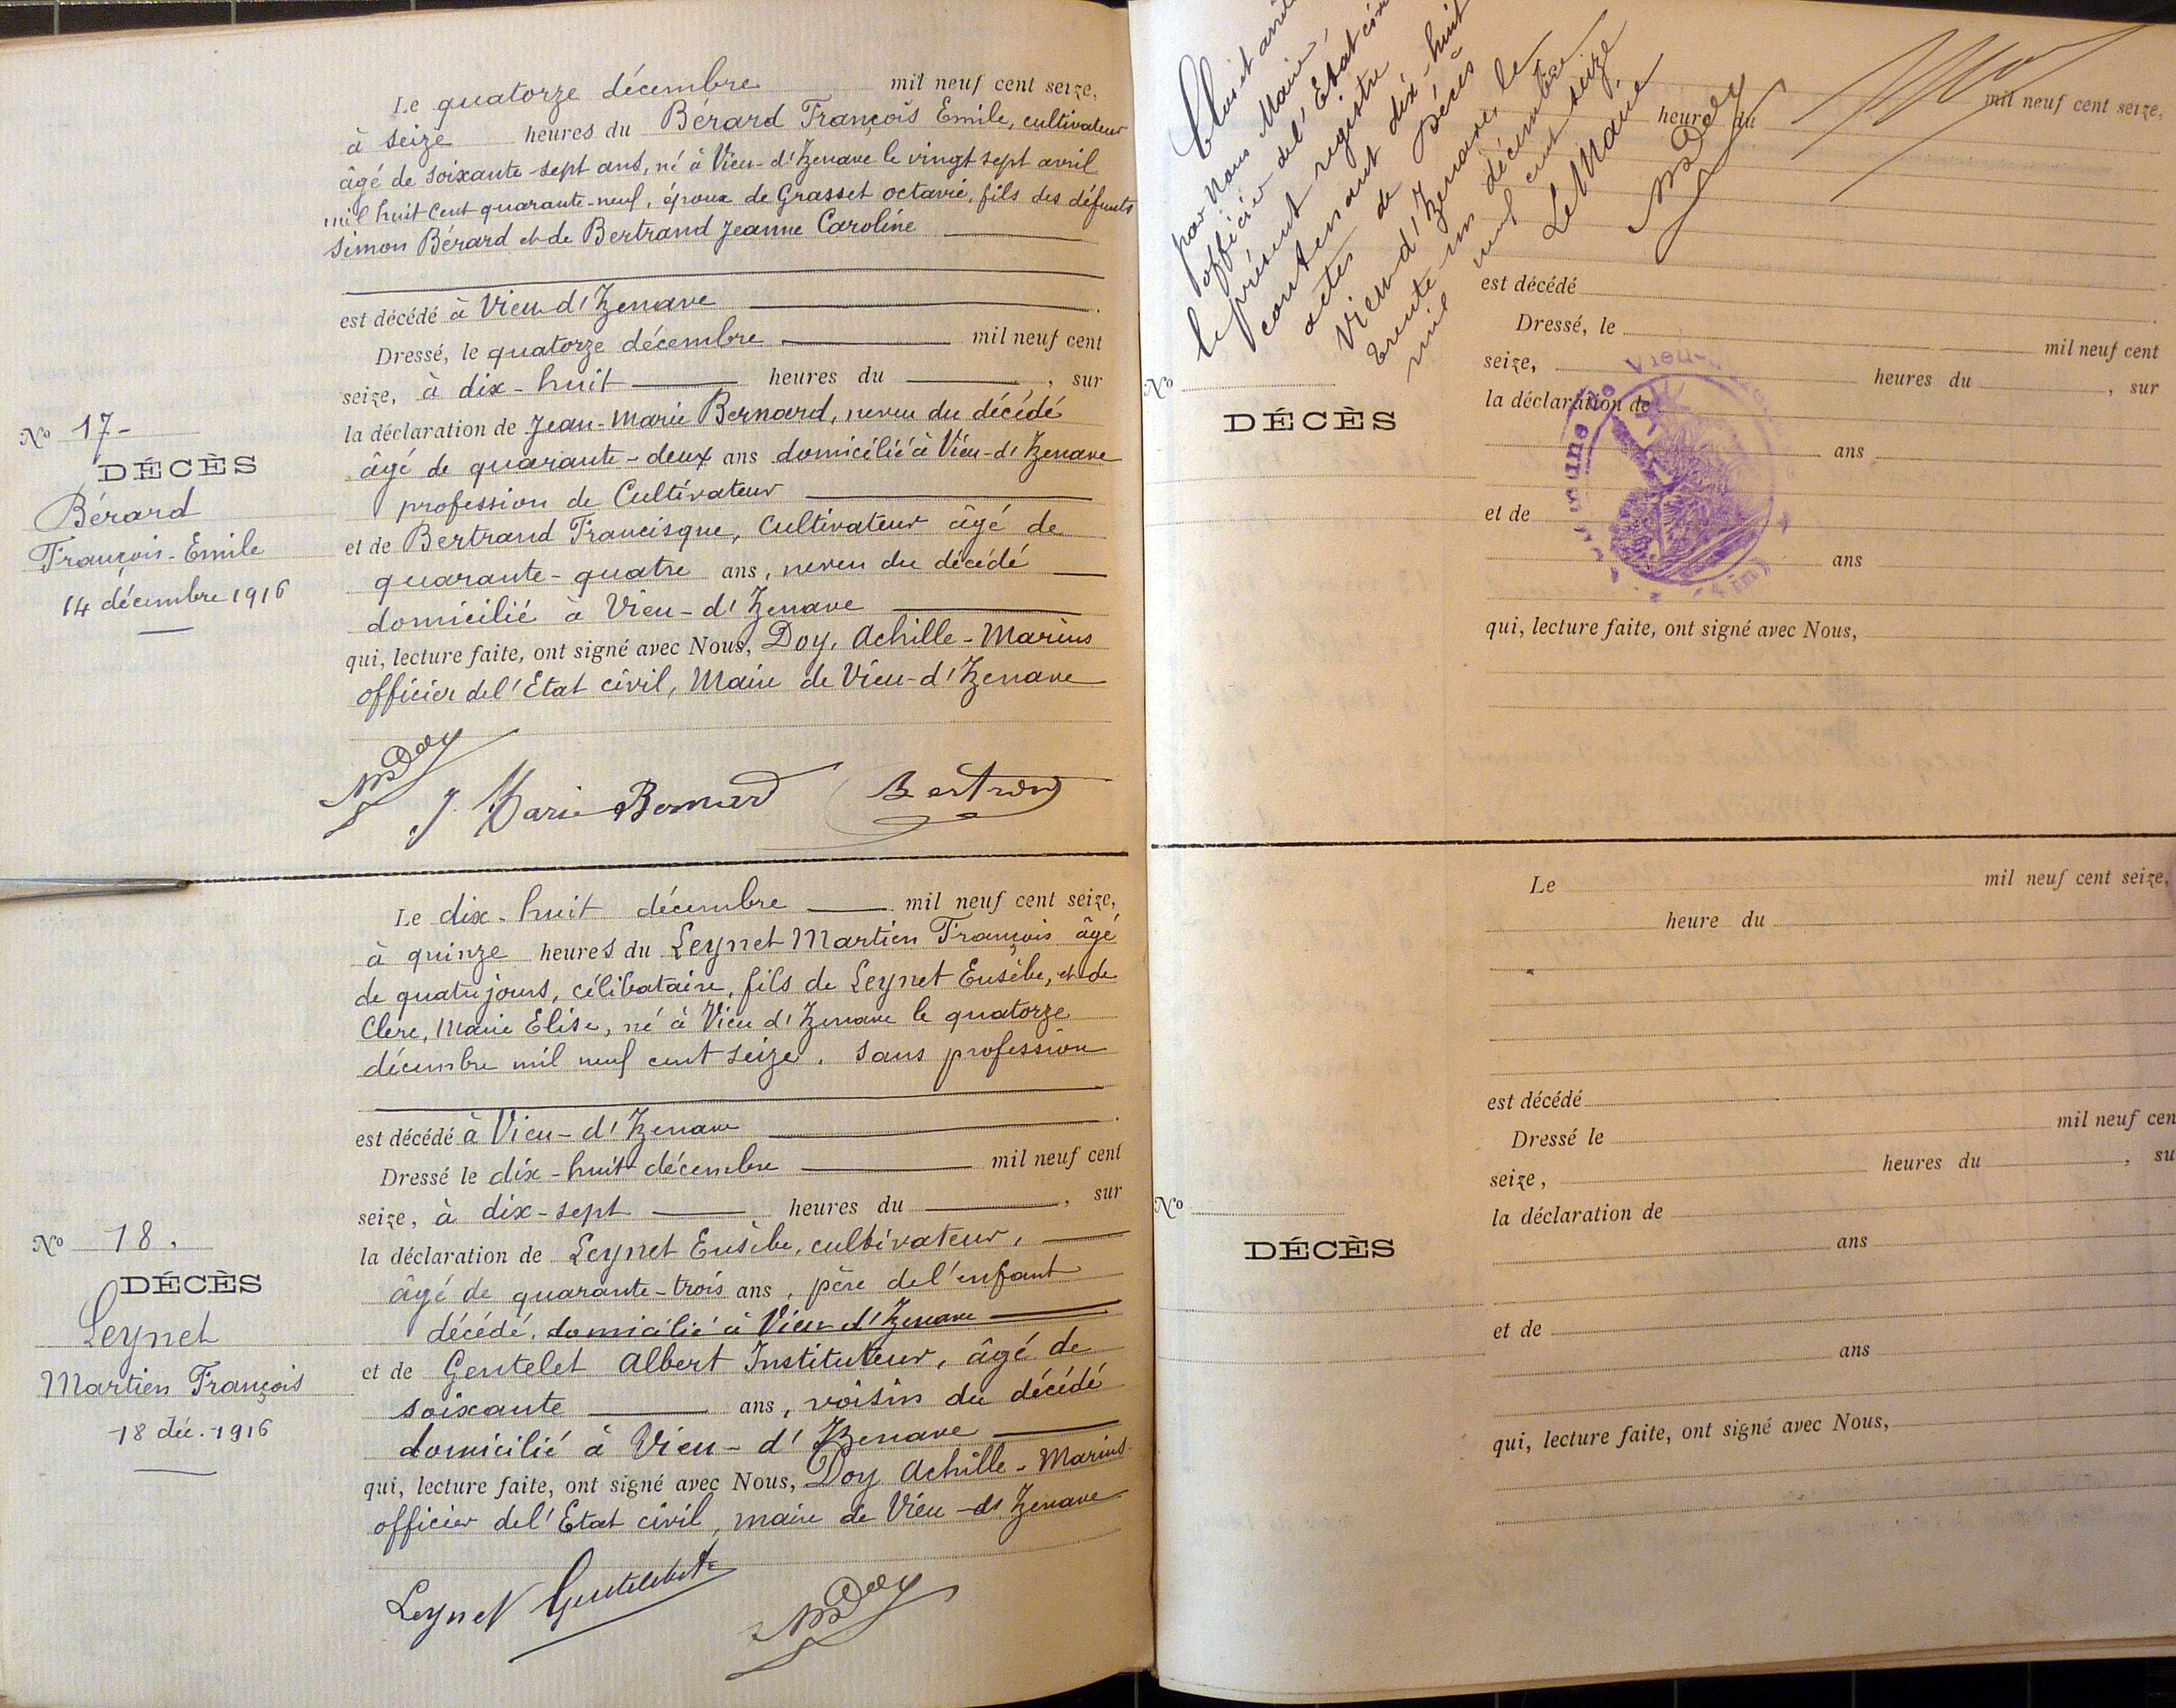 Le quatorze décembre mil neuf cent seize,
à seize heures du Bérard François Emile, cultivateur
âgé de soixante-sept ans, né à Vieu-d'Izenave le vingt sept avril
mil huit cent quarante-neuf, époux de Grasset octavie, fils des défunts
Simon Bérard et de Bertrand Jeanne Caroline
est décédé à Vieu d'Izenave
Dressé, le quatorze décembre mil neuf cent
seize, à dix-huit heures du , sur
la déclaration de Jean-Marie Bernard, neveu du décédé
âgé de quarante-deux ans domicilié à Vieu-d'Izenave
profession de Cultivateur
et de Bertrand Francisque, Cultivateur âgé de
quarante-quatre ans, neveu du décédé
domicilié à Vieu-d'Izenave
qui, lecture faite, ont signé avec Nous, Doy, Achille-Marius
officier de l'Etat civil, Maire de Vieu-d'Izenave
No 17-
DÉCÈS
Bérard
François-Emile
14 décembre 1916
MDoy J. Marie Bernard Bertrand
Le dix-huit décembre mil neuf cent seize,
à quinze heures du Leynet Martien François âgé
de quatre jours, célibataire, fils de Leynet Eusèbe, et de
Clerc, Marie Elise, né à Vieu d'Izenave le quatorze
décembre mil neuf cent seize. Sans profession
est décédé à Vieu-d'Izenave
Dressé le dix-huit décembre mil neuf cent
seize, à dix-sept heures du , sur
la déclaration de Leynet Eusèbe, cultivateur,
âgé de quarante-trois ans, père de l'enfant
décédé, domicilié à Vieu d'Izenave
et de Gentelet Albert Instituteur, âgé de
soixante ans, voisin du décédé
domicilié à Vieu-d'Izenave
qui, lecture faite, ont signé avec Nous, Doy Achille-Marius
officier de l'Etat civil, maire de Vieu-d'Izenave
No 18.
DÉCÈS
Leynet
Martien François
18 déc. 1916
Leynet Gentelet MDoy
Clos et arrêté
par nous Maire,
officier de l'Etat civil
le présent registre
contenant dix-huit
actes de Décès
Vieu d'Izenave, le
trente un décembre
mil neuf cent seize
Le Maire
MDoy
mil neuf cent seize,
heure du
est décédé
Dressé, le mil neuf cent
seize, heures du , sur
la déclaration de
ans
et de
ans
qui, lecture faite, ont signé avec Nous,
No
DÉCÈS
Vieu-
Le mil neuf cent seize,
heure du
est décédé
Dressé le mil neuf cen
seize, heures du , su
la déclaration de
ans
et de
ans
qui, lecture faite, ont signé avec Nous,
No
DÉCÈS